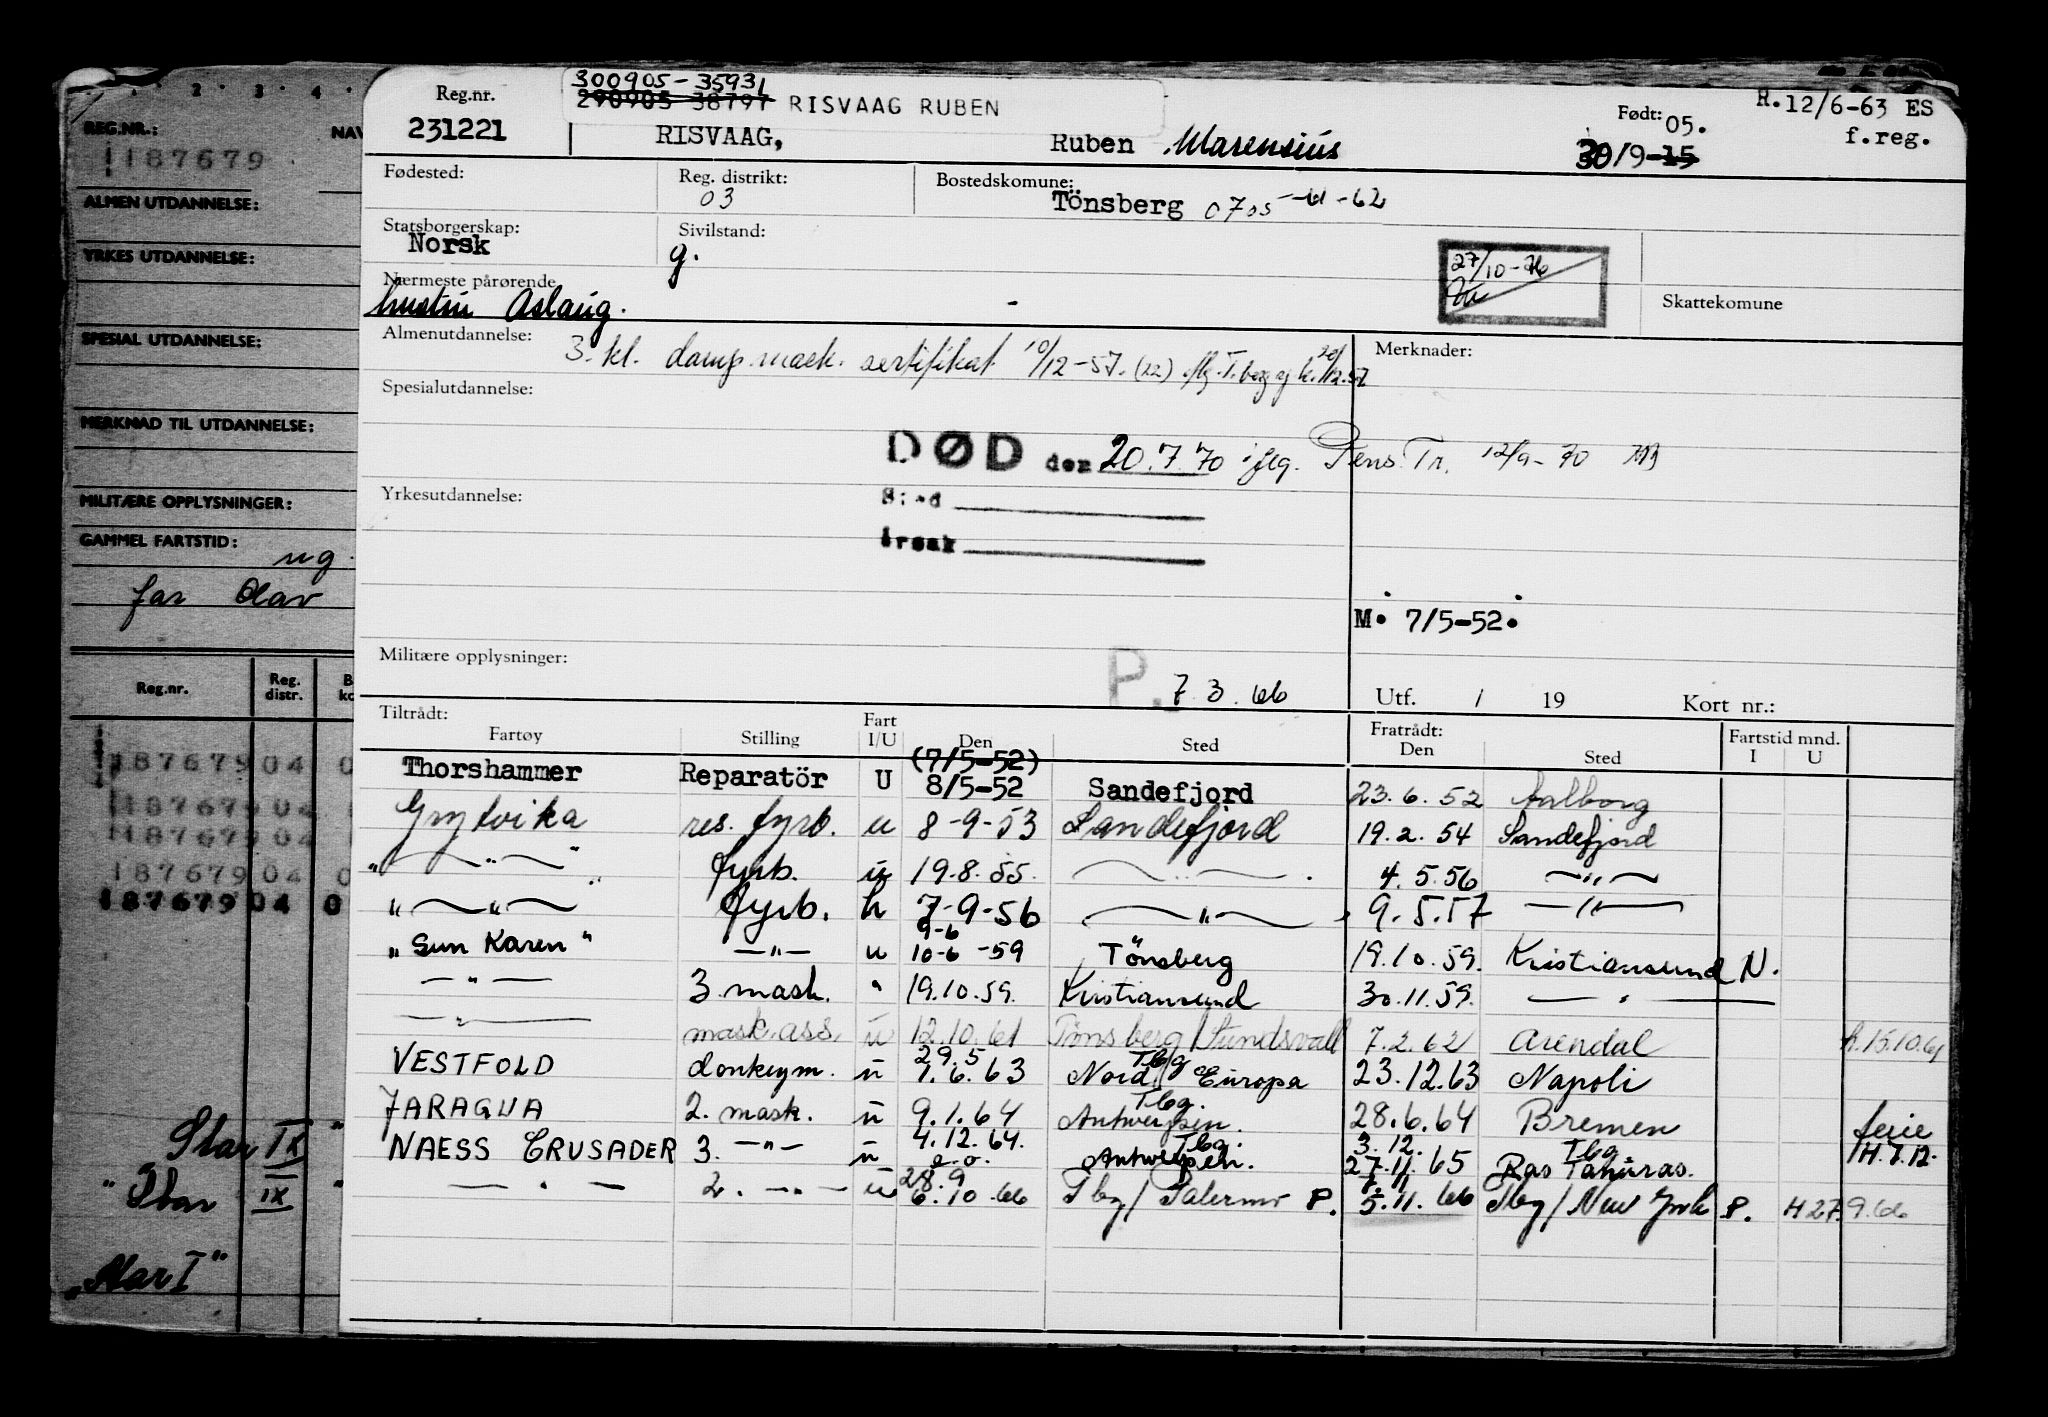 300905-35931
290905 38797 RISVAAG RUBEN
Reg.nr. 231221
RISVAAG, Ruben Marensius
Født: 05.
30/9-15
H.12/6-63 ES
f.reg.
Fødested:
Reg. distrikt: 03
Bostedskomune: Tönsberg 0705 -61-62
Statsborgerskap: Norsk
Sivilstand: g.
27/10-76
Nærmeste pårørende
hustru Aslaug.
Skattekomune
Almenutdannelse: 3. kl. damp.mask. sertifikat 10/12-57. (22)
Merknader:
Spesialutdannelse:
DØD den 20.7.70 Pens.Tr. 12/9-70
Sted
Årsak
Yrkesutdannelse:
M. 7/5-52.
Militære opplysninger:
P. 7.3.66
Utf. / 19 Kort nr.:
Tiltrådt: Fratrådt:
Fartøy Stilling Fart I/U Den Sted Den Sted Fartstid mnd. I U
Thorshammer Reparatör U (7/5-52) 8/5-52 Sandefjord 23.6.52 Aalborg
Grytvika res. fyrb. u 8-9-53 Sandefjord 19.2.54 Sandefjord
" — " — " fyrb. u 19.8.55. — " — 4.5.56 — " —
" — " — fyrb. u 7-9-56 — " — 9.5.57 — " —
"Gun Karen" — " — u 9-6 10-6-59 Tönsberg 19.10.59. Kristiansund N.
— " — 3 mask. " 19.10.59. Kristiansund 30.11.59. — " —
— " — mask.ass. u 12.10.61 Tönsberg/Sundsvall 7.2.62 Arendal h.15.10.61
VESTFOLD donkeym. u 29.5 1.6.63 Tbg/g Nord Europa 23.12.63 Napoli
JARAGUA 2. mask. u 9.1.64 Tbg. Antwerpen. 28.6.64 Bremen ferie
NAESS CRUSADER 3. — " — u 4.12.64. e.o. Tbg. Antwerpen. 3.12. 27.11.65 Tbg Ras Tanuras. H.7.12.
— " — 2. — " — u 28.9 6.10.66 Tbg/Palermo P. 5.11.66 Tbg/New York P. H 27.9.66
REG.NR.: NAV
187679
ALMEN UTDANNELSE:
YRKES UTDANNELSE:
SPESIAL UTDANNELSE:
MERKNAD TIL UTDANNELSE:
MILITÆRE OPPLYSNINGER:
GAMMEL FARTSTID:
ug.
far Olav
Reg.nr. Reg. distr. B ko
187679 04 0
187679 04
187679 04
187679 04 0
187679 04 0
Star IX "
"Star IX "
"Star I"